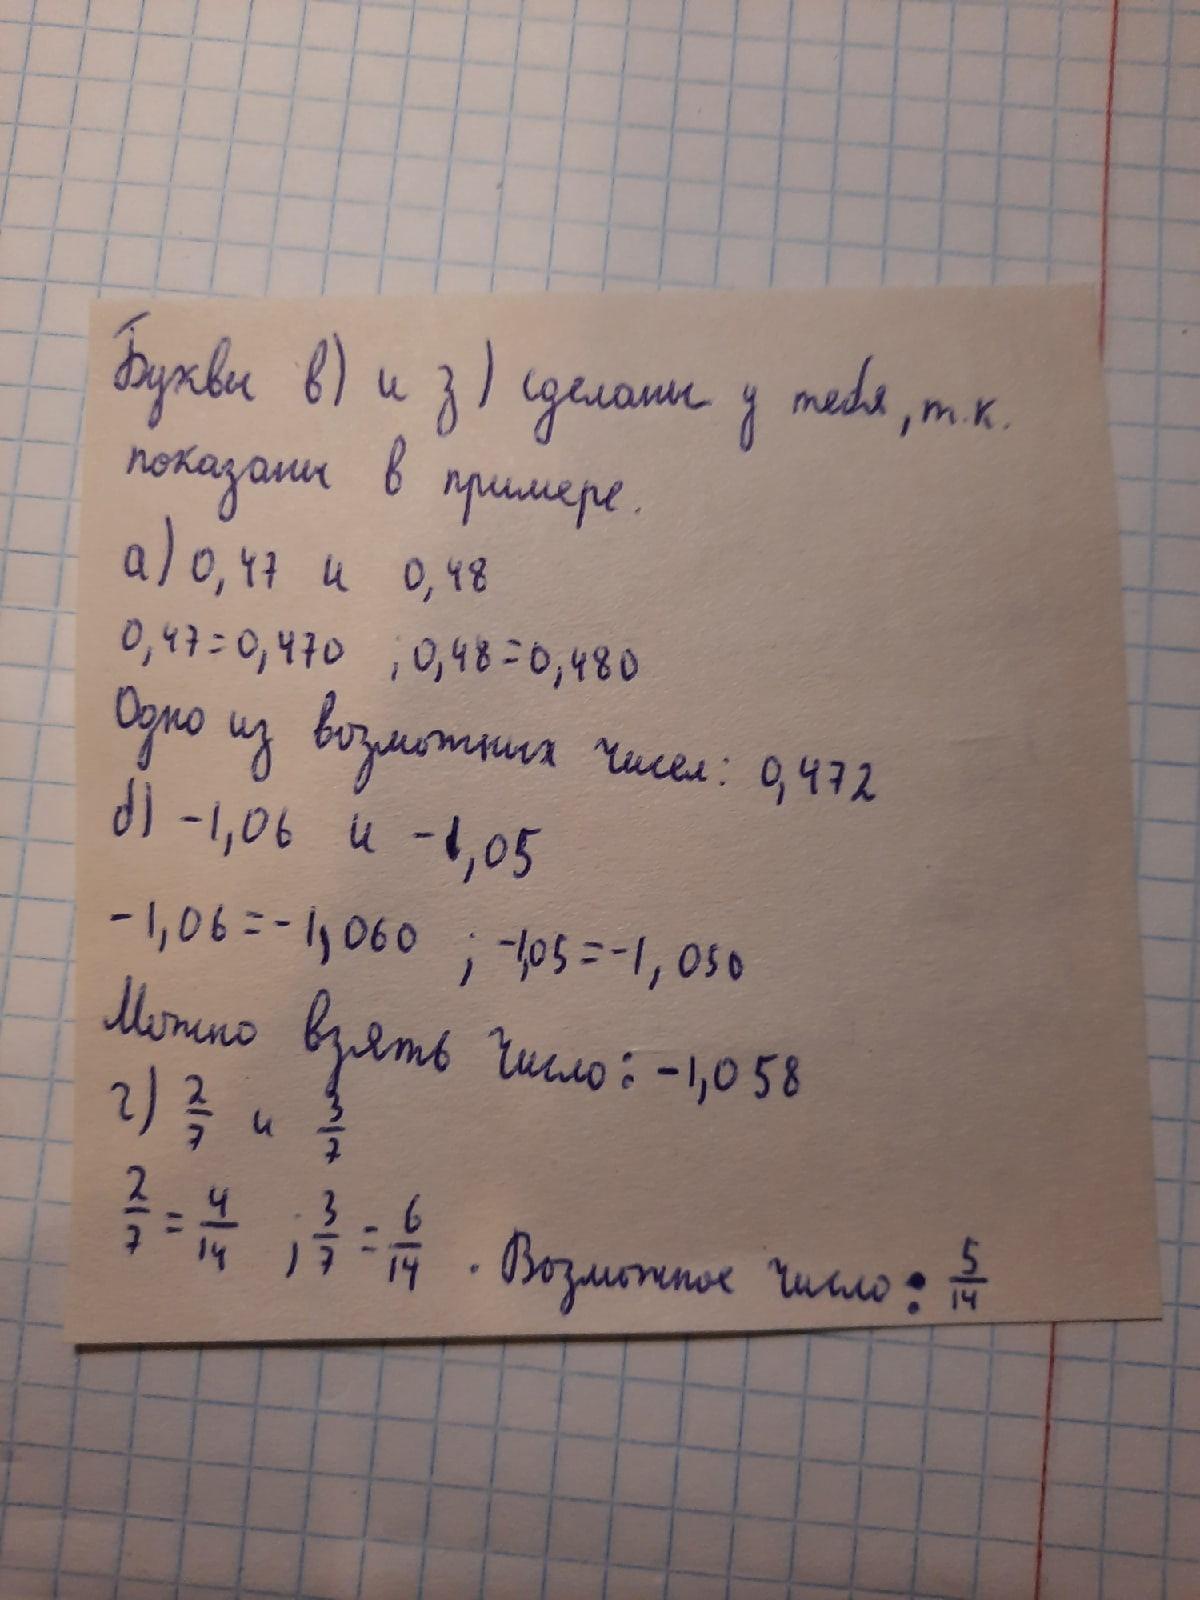 Буквы в) и з) сделаны у тебя, т.к.
показаны в примере.
а) 0,47 и 0,48
0,47=0,470 ; 0,48=0,480
Одно из возможных чисел: 0,472
б) -1,06 и -1,05
-1,06=-1,060 ; -1,05=-1,050
Можно взять число: -1,058
г) 2/7 и 3/7
2/7 = 4/14 ; 3/7 = 6/14 . Возможное число: 5/14